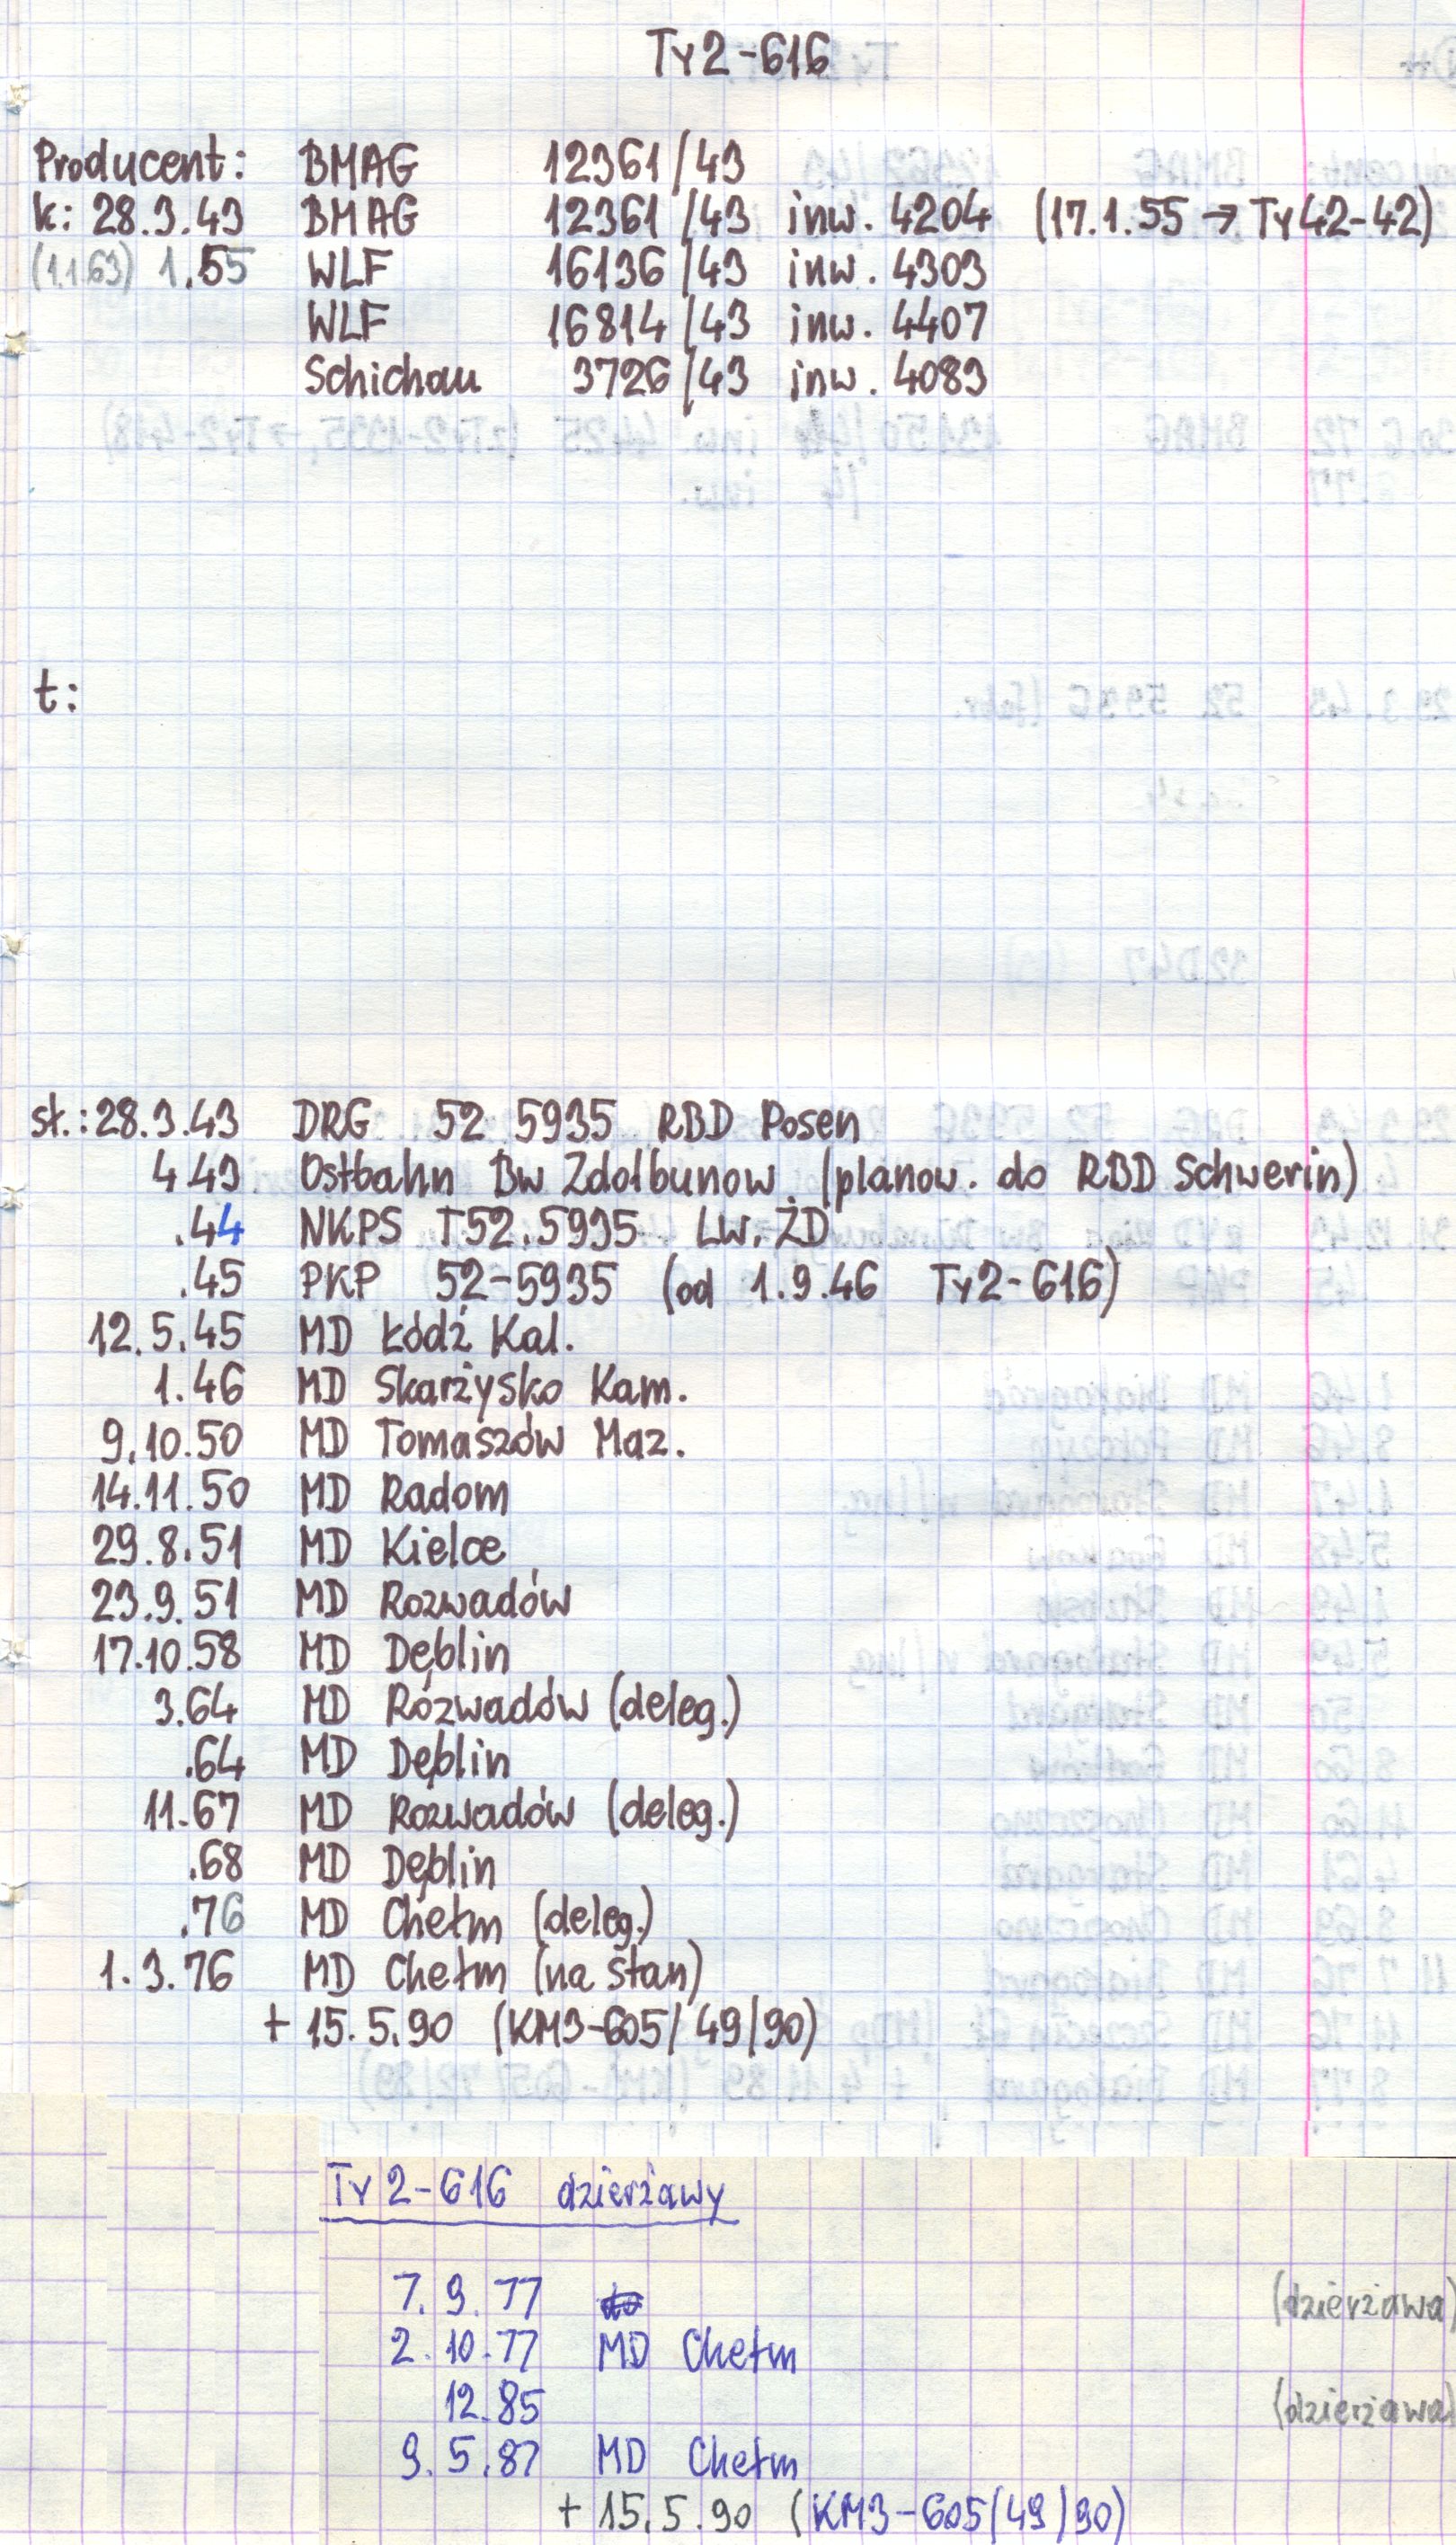 Ty2-616
Producent: BMAG 12361/43
k: 28.3.43 BMAG 12361/43 inw. 4204 (17.1.55 → Ty42-42)
(1.1.63) 1.55 WLF 16136/43 inw. 4303
WLF 16814/43 inw. 4407
Schichau 3726/43 inw. 4083
t:
st.: 28.3.43 DRG 52 5935 RBD Posen
4.43 Ostbahn Bw Zdolbunow (planow. do RBD Schwerin)
.44 NKPS T52.5935 Lw. ŻD
.45 PKP 52-5935 (od 1.9.46 Ty2-616)
12.5.45 MD Łódź Kal.
1.46 MD Skarżysko Kam.
9.10.50 MD Tomaszów Maz.
14.11.50 MD Radom
29.8.51 MD Kielce
23.9.51 MD Rozwadów
17.10.58 MD Dęblin
3.64 MD Rozwadów (deleg.)
.64 MD Dęblin
11.67 MD Rozwadów (deleg.)
.68 MD Dęblin
.76 MD Chełm (deleg.)
1.3.76 MD Chełm (na stan)
+ 15.5.90 (KM3-605/49/90)
Ty2-616 dzierżawy
7.9.77 (dzierżawa)
2.10.77 MD Chełm
12.85 (dzierżawa)
9.5.87 MD Chełm
+ 15.5.90 (KM3-605/49/90)